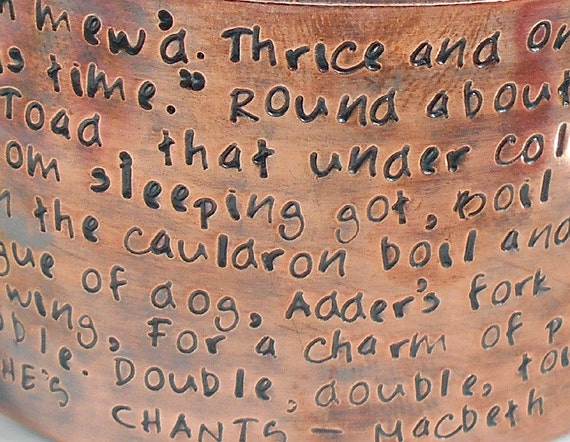 mew'd. Thrice and on
time." Round about
Toad, that under col
om sleeping got, Boil
n the cauldron boil and
gue of dog, Adder's fork
wing, For a charm of p
ble. Double, double, to
HE'S CHANTS — Macbeth